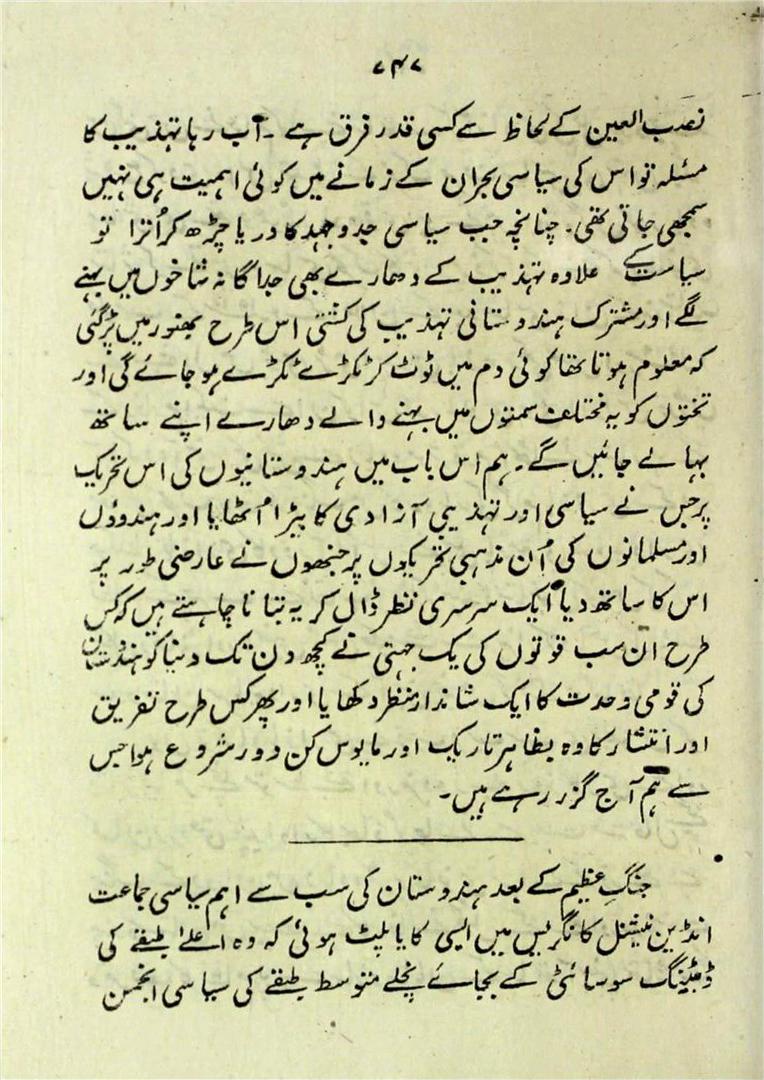 ۷۴۷
نصب العین کے لحاظ سے کسی قدر فرق ہے ۔ اب رہا تہذیب کا
مسئلہ تو اس کی سیاسی بحران کے زمانے میں کوئی اہمیت ہی نہیں
سمجھی جاتی تھی۔ چنانچہ جب سیاسی جدوجہد کا دریا چڑھ کر اُترا تو
سیاست کے علاوہ تہذیب کے دھارے بھی جداگانہ شاخوں میں بہنے
لگے اور مشترک ہندوستانی تہذیب کی کشتی اس طرح بھنور میں پڑ گئی
کہ معلوم ہوتا تھا کوئی دم میں ٹوٹ کر ٹکڑے ٹکڑے ہو جائے گی اور
تختوں کو یہ مختلف سمتوں میں بہنے والے دھارے اپنے ساتھ
بہا لے جائیں گے۔ ہم اس باب میں ہندوستانیوں کی اس تحریک
پر جس نے سیاسی اور تہذیبی آزادی کا بیڑا اُٹھایا اور ہندوؤں
اور مسلمانوں کی اُن مذہبی تحریکوں پر جنھوں نے عارضی طور پر
اس کا ساتھ دیا ایک سرسری نظر ڈال کر یہ بتانا چاہتے ہیں کہ کس
طرح ان سب قوتوں کی یک جہتی نے کچھ دن تک دنیا کو ہندوستان
کی قومی وحدت کا ایک شاندار منظر دکھایا اور پھر کس طرح تفریق
اور انتشار کا وہ بظاہر تاریک اور مایوس کن دور شروع ہوا جس
سے ہم آج گزر رہے ہیں۔
جنگِ عظیم کے بعد ہندوستان کی سب سے اہم سیاسی جماعت
انڈین نیشنل کانگریس میں ایسی کایا پلٹ ہوئی کہ وہ اعلےٰ طبقے کی
ڈبیٹنگ سوسائٹی کے بجائے نچلے متوسط طبقے کی سیاسی انجمن